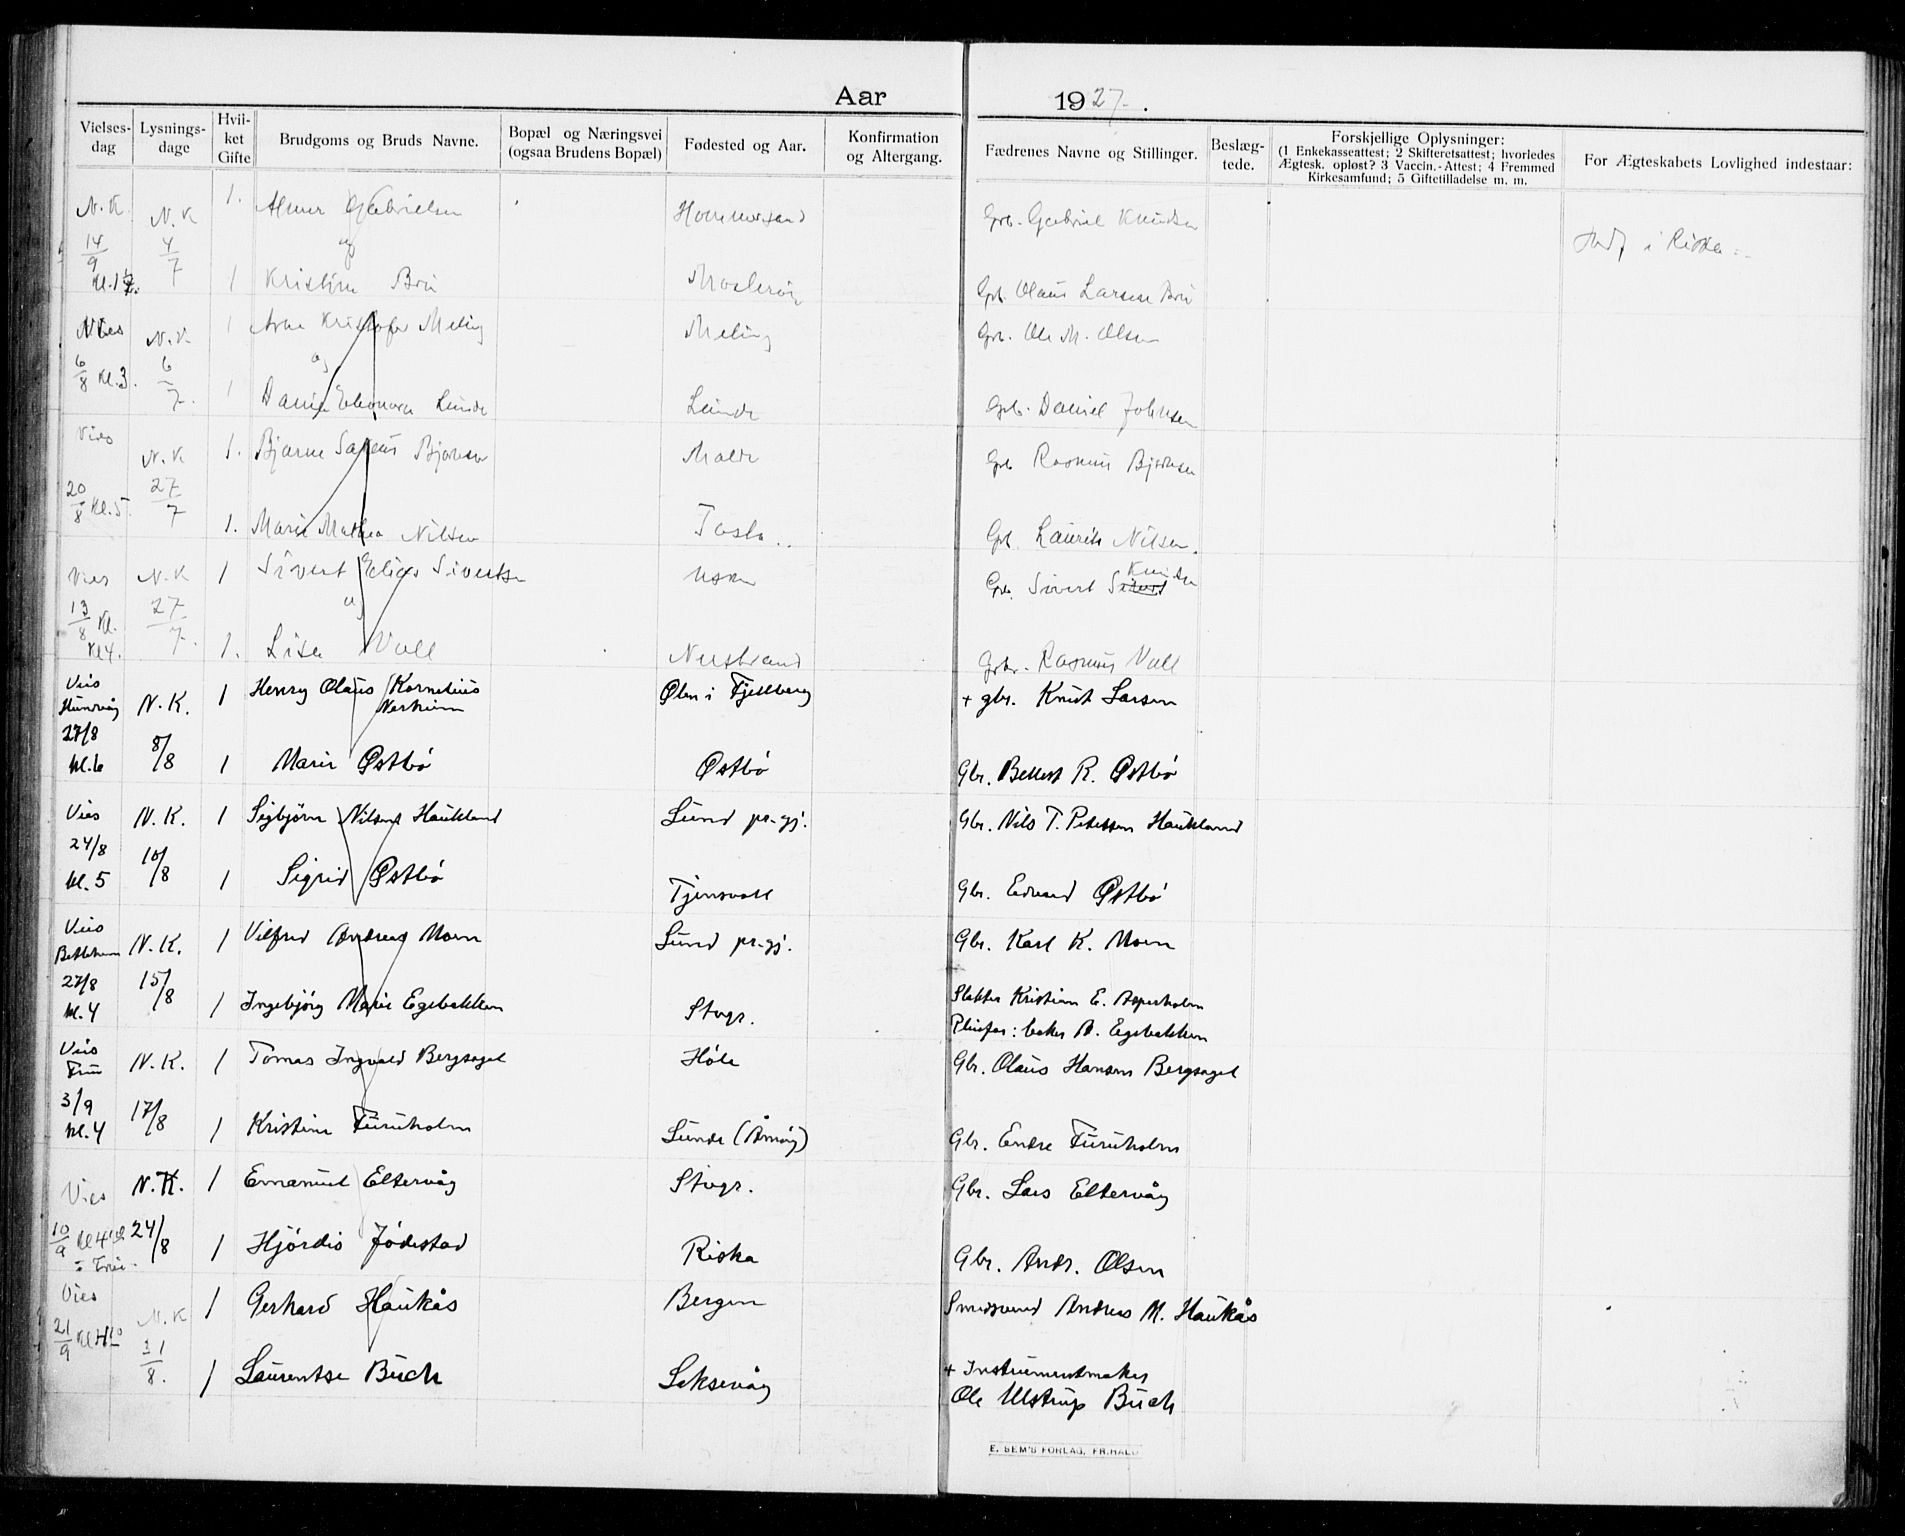 Aar 1927.
Vielses-dag
Lysnings-dage
Hvilket Gifte
Brudgoms og Bruds Navne.
Bopæl og Næringsvei (ogsaa Brudens Bopæl)
Fødested og Aar.
Konfirmation og Altergang.
Fædrenes Navne og Stillinger.
Beslæg-tede.
Forskjellige Oplysninger:
(1 Enkekasseattest; 2 Skifteretsattest; hvorledes
Ægtesk. opløst? 3 Vaccin.-Attest; 4 Fremmed
Kirkesamfund; 5 Giftetilladelse m. m.
For Ægteskabets Lovlighed indestaar:
N.K. N.K 1. Gabrielsen Hommersand Grb. Gabriel Knudsen
14/9 4/7 og i Riska
1 Kristine Brü Mosterøy Grb. Olaus Larsen Brü
Vies N.K 1 Arne Kristofer Meling Meling Grb. Ole M. Olsen
6/8 Kl.3. 6/7. og
1 Eleonora Lunde Lunde Grb. Daniel Johnsen
Vies N.K 1. Bjarne Bjørnsen Grb Rasmus Bjørnsen
20/8 Kl.5. 27/7
1. Marie Mathea Nilsen Tasta.. Grb. Laurits Nilsen.
Vies N.K 1 Sivert Elias Sivertsen Usken Grb. Sivert Knudsen
13/8 Kl. 27/7. og
Kl 4. 1. Lisa Vall Nerstrand Grbr. Rasmus Vall
Vies 1 Henry Olaus Kornelius Ølen i Fjellberg + gbr. Knut Larsen
Hundvåg N.K. Nerheim
27/8 8/8
kl.6 1 Marie Østbø Østbø Gbr. R. Østbø
Vies N.K. 1 Sigbjørn Nilsen Haukland Lund pr.gj. Gbr. Nils T. Petersen Haukland
24/8 10/8
kl.5 1 Sigrid Østbø Tjensvoll Gbr. Edvard Østbø
Vies
Betlehem N.K. 1 Vilfred Andreas Moen Lund pr.gj. Gbr. Karl K. Moen
27/8 15/8
kl.4 1 Ingebjørg Marie Egebakken Stvgr. Slakter Kristian E. Asperholm
Pleiefar: baker A. Egebakken
Vies
Frue N.K. 1 Tomas Ingvald Bergsagel Høle Gbr. Olaus Hansen Bergsagel
3/9 17/8
kl.4 1 Kristine Furuholm Lunde (Åmøy) Gbr. Endre Furuholm
Vies N.K. 1 Emanuel Eltervåg Stvgr. Gbr. Lars Eltervåg
10/9 24/8 1 Hjørdis Jødestad Riska Gbr. Andr. Olsen
Vies N.K 1 Gerhard Haukås Bergen Smedsvend Andreas M. Haukås
21/9 31/8. 1 Laurentse Buch Laksevåg + Instrumentmaker
Ole Ulstrup Buch
E. SEM'S FORLAG, FR.HALD